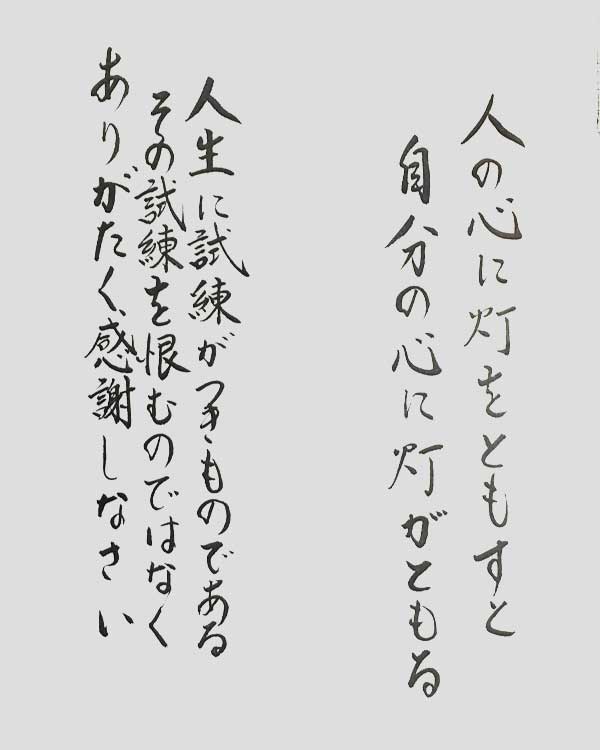 人の心に灯をともすと
自分の心に灯がともる
人生に試練がつきものである
その試練を恨むのではなく
ありがたく感謝しなさい